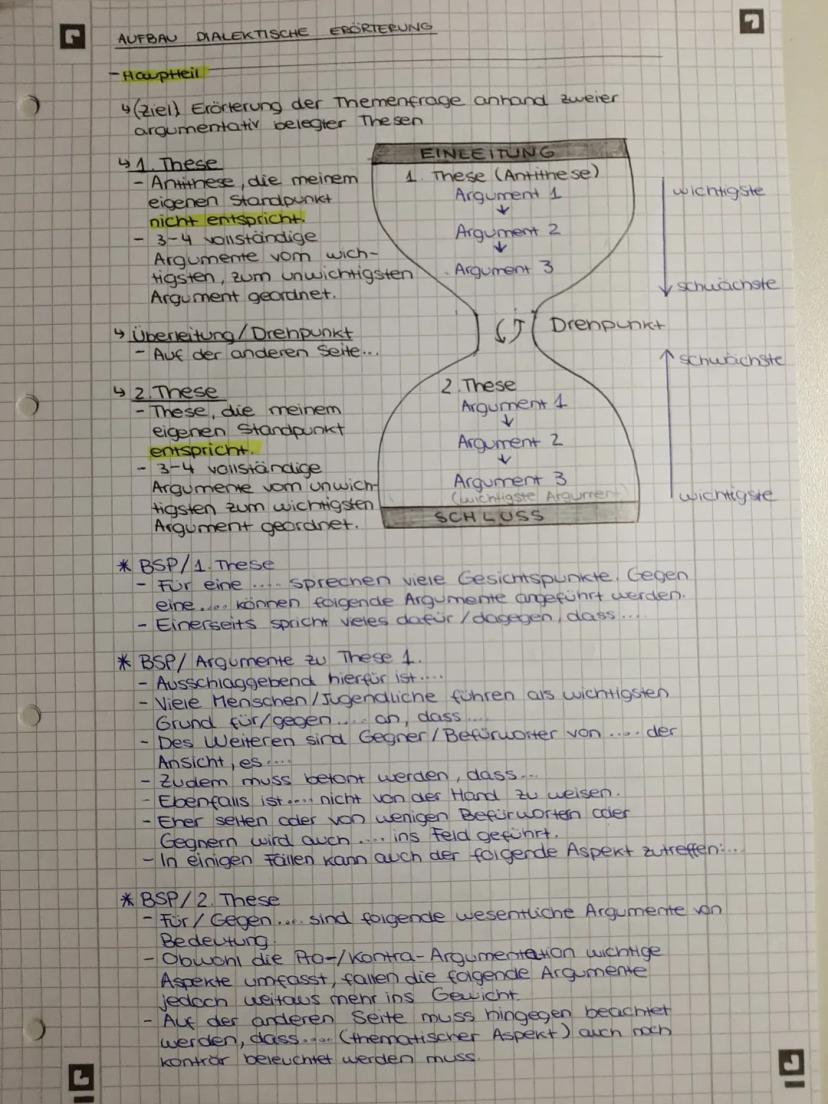 AUFBAU DIALEKTISCHE ERÖRTERUNG
- Hauptteil
↳ (Ziel) Erörterung der Themenfrage anhand zweier
argumentativ belegter Thesen
↳ 1. These
- Antithese, die meinem
eigenen Standpunkt
nicht entspricht.
- 3-4 vollständige
Argumente vom wich-
tigsten, zum unwichtigsten
Argument geordnet.
↳ Überleitung/Drehpunkt
- Auf der anderen Seite...
↳ 2. These
- These, die meinem
eigenen Standpunkt
entspricht.
- 3-4 vollständige
Argumente vom unwich-
tigsten zum wichtigsten
Argument geordnet.
EINLEITUNG
1. These (Antithese)
Argument 1
↓
Argument 2
↓
Argument 3
wichtigste
↓ schwächste
Drehpunkt
↑ schwächste
wichtigste
2. These
Argument 1
↓
Argument 2
↓
Argument 3
(wichtigste Argument)
SCHLUSS
* BSP/1. These
- Für eine .... sprechen viele Gesichtspunkte. Gegen
eine .... können folgende Argumente angeführt werden.
- Einerseits spricht vieles dafür/dagegen, dass....
* BSP/ Argumente zu These 1.
- Ausschlaggebend hierfür ist....
- Viele Menschen/Jugendliche führen als wichtigsten
Grund für/gegen .... an, dass....
- Des Weiteren sind Gegner/Befürworter von .... der
Ansicht, es ....
- Zudem muss betont werden, dass...
- Ebenfalls ist .... nicht von der Hand zu weisen.
- Eher selten oder von wenigen Befürworten oder
Gegnern wird auch .... ins Feld geführt.
- In einigen Fällen kann auch der folgende Aspekt zutreffen:...
* BSP/ 2. These
- Für/ Gegen .... sind folgende wesentliche Argumente von
Bedeutung.
- Obwohl die Pro-/Kontra-Argumentation wichtige
Aspekte umfasst, fallen die folgende Argumente
jedoch weitaus mehr ins Gewicht.
- Auf der anderen Seite muss hingegen beachtet
werden, dass .... (thematischer Aspekt) auch noch
konträr beleuchtet werden muss.